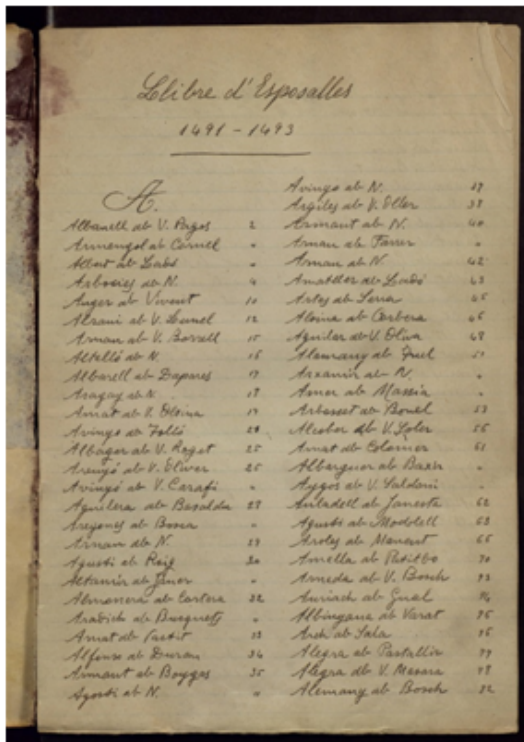 Llibre d'Esposalles
1491 - 1493
A.
Albanell ab V. Pages 2
Armengol ab Cornel "
Albert ab "
ab N.
Auger ab Vivent 10
ab V. 12
Arnau ab V. Borrell 15
Altelló ab N. 16
Albarell ab Dapares 17
Aragay ab N. 18
Amat ab V. 19
Avinyo ab Folló
Albager ab V. Roget 25
Arenyó ab V. Oliver 25
Avinyó ab V. Carafi "
Aguilera ab 27
Areyones ab Bosca "
Arnau ab N. 29
Agusti ab Roig 30
Altamir ab Janer "
Almonera ab Cortera 32
Aradich ab Busquets "
Amat ab Pastit 33
Alfonso ab Duran 34
Armant ab Boygas 35
Agosti ab N. "
Avinyo ab N. 37
Argiles ab V. Eller 38
Armant ab N. 40
Arnau ab Farrer "
Arnau ab N. 42
Amatller ab 43
Artes ab Serra 45
ab Corbera 46
Aguilar ab V. Oliva 48
Alemany ab 51
ab N. "
Amer ab Massia "
Arbosset ab Bonel 53
ab V. Soler 55
Amat ab Colomer 61
Alberguer ab Baxer "
Aygos ab V. "
ab 62
Agusti ab Modolell 63
Aroles ab Manent 66
Amella ab 70
Armeda ab V. Bosch 73
Auriach ab Gual 74
Albinyana ab Varat 75
Arch ab Sala 75
Alegra ab Pastallir 77
Alegra ab V. 78
Alemany ab Bosch 82